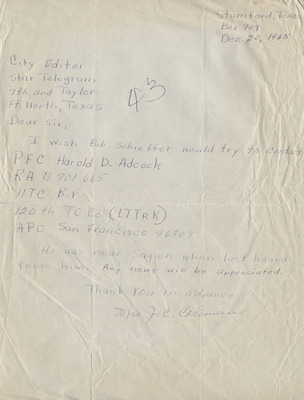 Stamford, Texas
Box 909
Dec. 20, 1965
City Editor
Star Telegram
7th and Taylor
Ft. Worth, Texas
43
Dear Sir,
I wish Bob Schieffer would try to contact
PFC Harold D. Adcock
RA 18 701 665
120th TC Co. (LTTRK)
APO San Francisco 96307
He was near Saigon when last heard
from him. Any news will be appreciated.
Thank You in advance
Mrs. J. C. Coleman